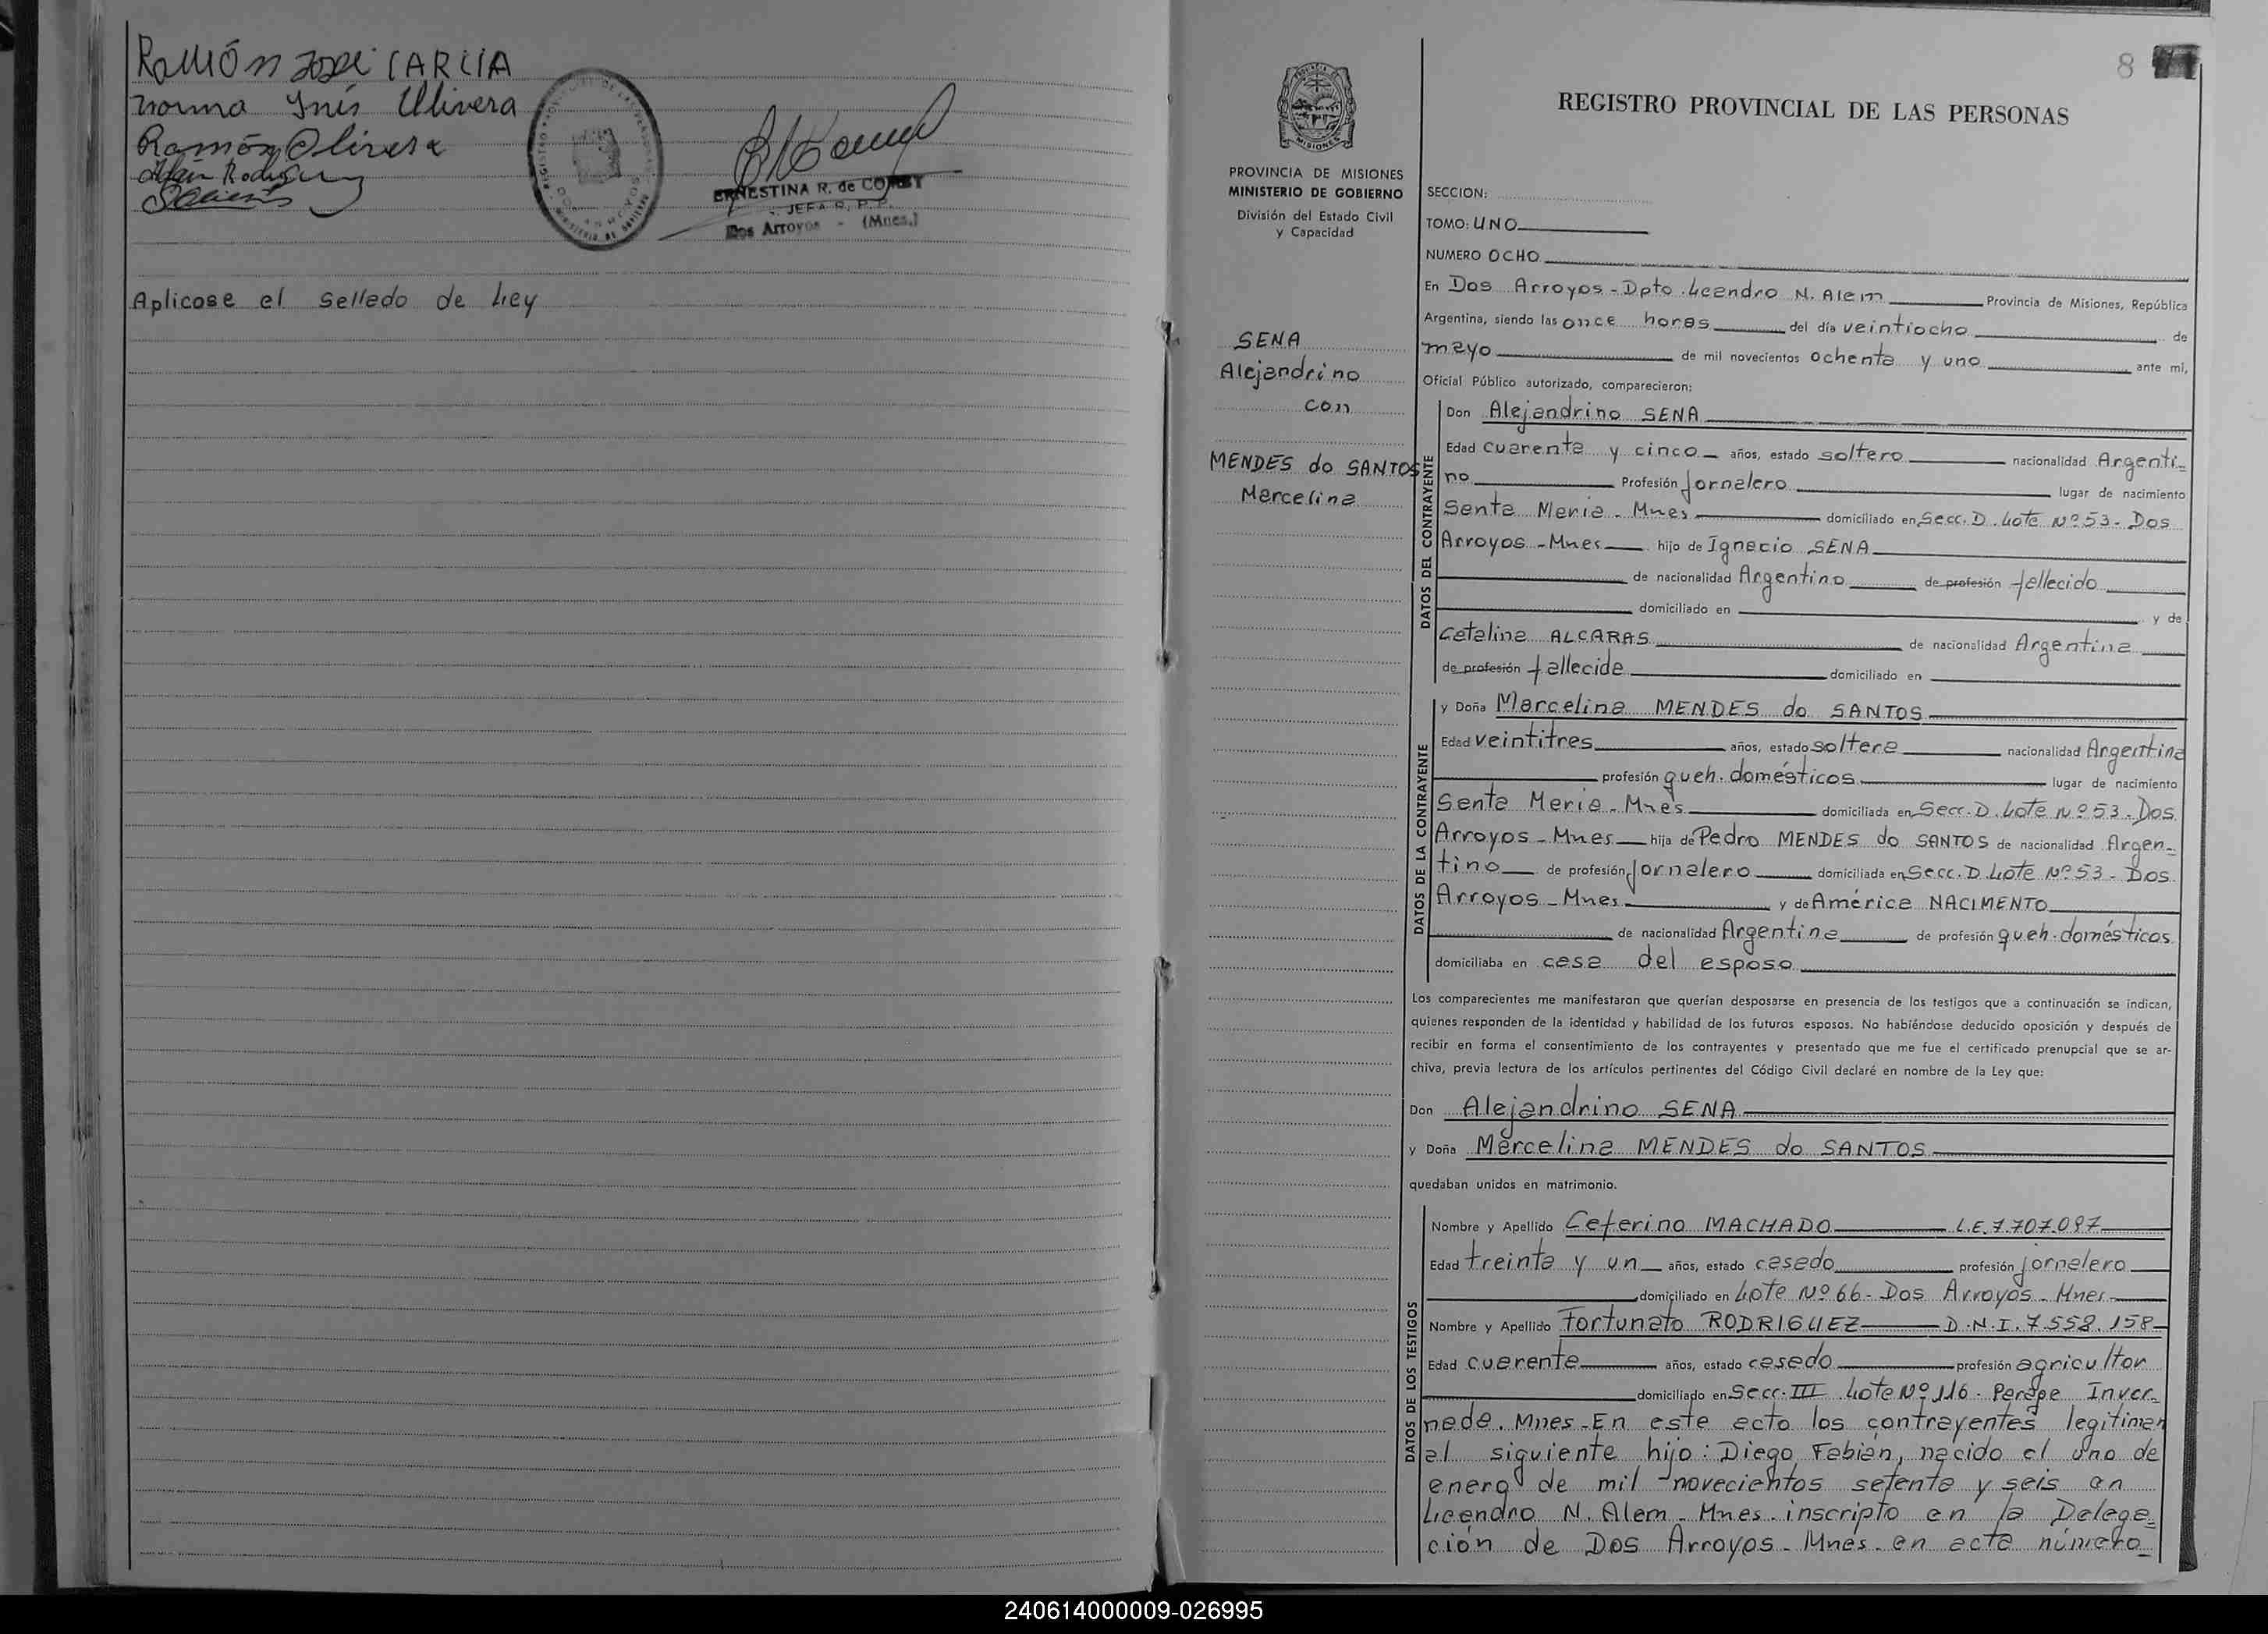 Ramón José GARCIA
Norma Inés Olivera
Ramón Olivera
Rodriguez
ERNESTINA R. de
JEFA R. P. P.
Dos Arroyos - (Mnes.)
Aplicose el sellado de Ley
8
REGISTRO PROVINCIAL DE LAS PERSONAS
PROVINCIA DE MISIONES
MINISTERIO DE GOBIERNO
División del Estado Civil
y Capacidad
SENA
Alejandrino
con
MENDES do SANTOS
Marcelina
SECCION:
TOMO: UNO
NUMERO OCHO
En Dos Arroyos - Dpto. Leandro N. Alem Provincia de Misiones, República
Argentina, siendo las once horas del día veintiocho de
mayo de mil novecientos ochenta y uno ante mi,
Oficial Público autorizado, comparecieron:
DATOS DEL CONTRAYENTE
Don Alejandrino SENA
Edad cuarenta y cinco años, estado soltero nacionalidad Argenti-
no Profesión jornalero lugar de nacimiento
Santa Maria - Mnes domiciliado en Secc. D. Lote Nº 53 - Dos
Arroyos - Mnes hijo de Ignacio SENA
de nacionalidad Argentino de profesión fallecido
domiciliado en y de
Catalina ALCARAS de nacionalidad Argentina
de profesión fallecida domiciliado en
DATOS DE LA CONTRAYENTE
y Doña Marcelina MENDES do SANTOS
Edad veintitres años, estado soltera nacionalidad Argentina
profesión queh. domésticos lugar de nacimiento
Santa Maria - Mnes domiciliada en Secc. D. Lote Nº 53 - Dos
Arroyos - Mnes hija de Pedro MENDES do SANTOS de nacionalidad Argen-
tino de profesión jornalero domiciliada en Secc. D Lote Nº 53 - Dos
Arroyos - Mnes y de América NACIMENTO
de nacionalidad Argentina de profesión queh. domésticos
domiciliaba en casa del esposo
Los comparecientes me manifestaron que querían desposarse en presencia de los testigos que a continuación se indican,
quienes responden de la identidad y habilidad de los futuros esposos. No habiéndose deducido oposición y después de
recibir en forma el consentimiento de los contrayentes y presentado que me fue el certificado prenupcial que se ar-
chiva, previa lectura de los artículos pertinentes del Código Civil declaré en nombre de la Ley que:
Don Alejandrino SENA
y Doña Marcelina MENDES do SANTOS
quedaban unidos en matrimonio.
DATOS DE LOS TESTIGOS
Nombre y Apellido Ceferino MACHADO L.E. 7.707.097
Edad treinta y un años, estado casado profesión jornalero
domiciliado en Lote Nº 66 - Dos Arroyos - Mnes
Nombre y Apellido Fortunato RODRIGUEZ D.N.I. 7.558.158
Edad cuarenta años, estado casado profesión agricultor
domiciliado en Secc. III Lote Nº 116 - Perape Inver-
nada. Mnes - En este acto los contrayentes legitiman
al siguiente hijo: Diego Fabián, nacido el uno de
enero de mil novecientos setenta y seis en
Leandro N. Alem - Mnes. inscripto en la Delega=
ción de Dos Arroyos - Mnes. en acta número
240614000009-026995